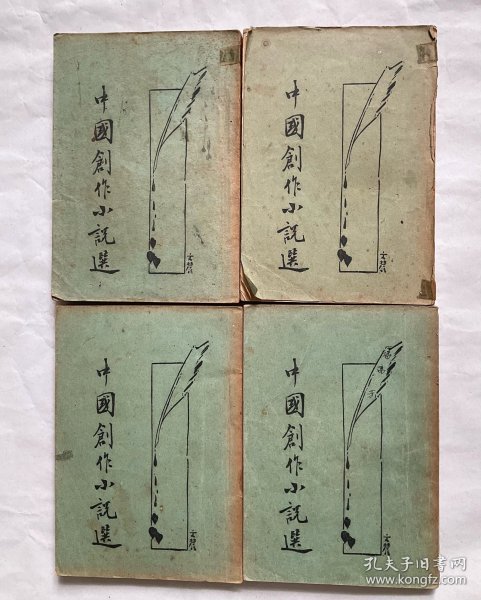 中國創作小説選
中國創作小説選
中國創作小説選
中國創作小説選
孔夫子旧书网
www.kongfz.com